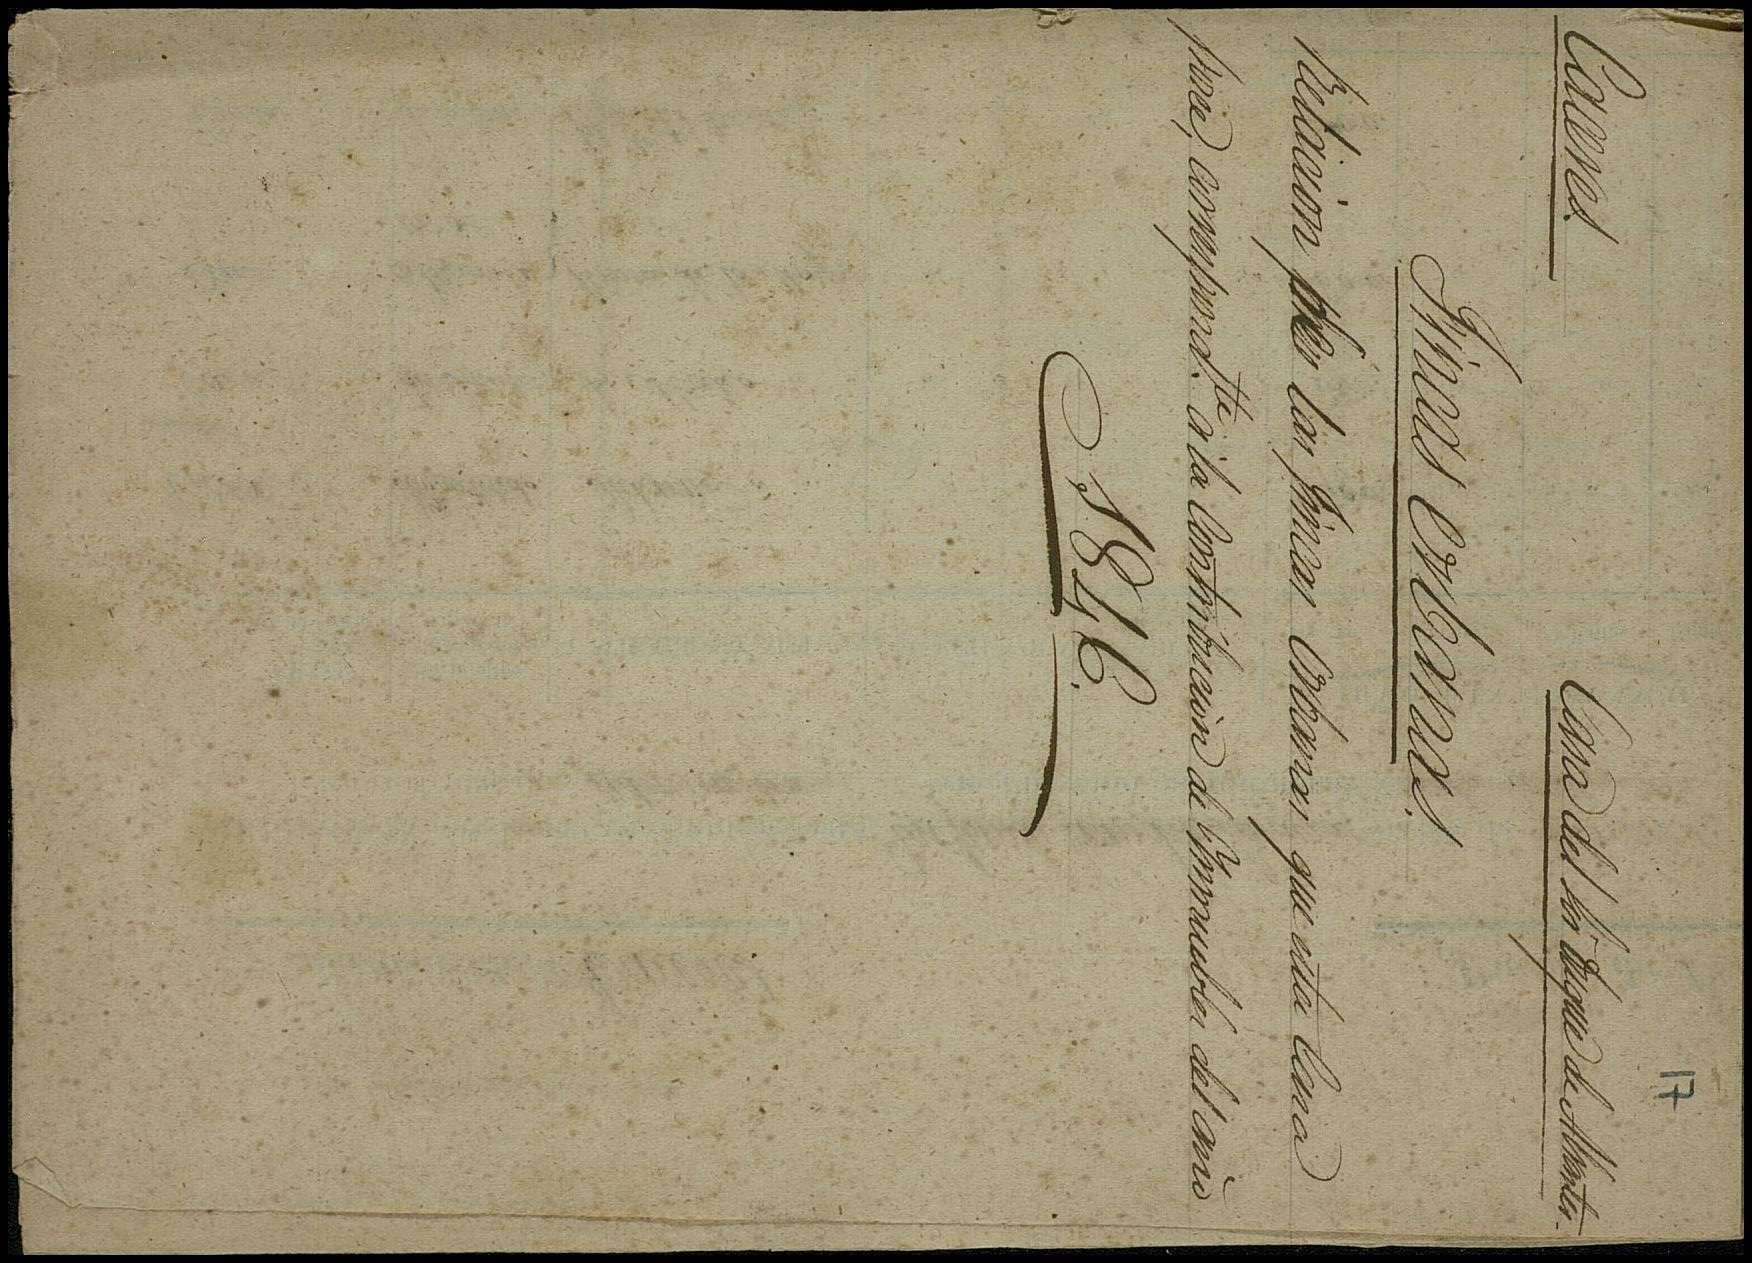 17
Caceres. Casa del Sr. Duque de Abrantes.
Fincas Urbanas.
Relacion por las fincas Urbanas que esta Casa
posee, correspond.te a la Contribucion de Ynmuebles del año
1846.